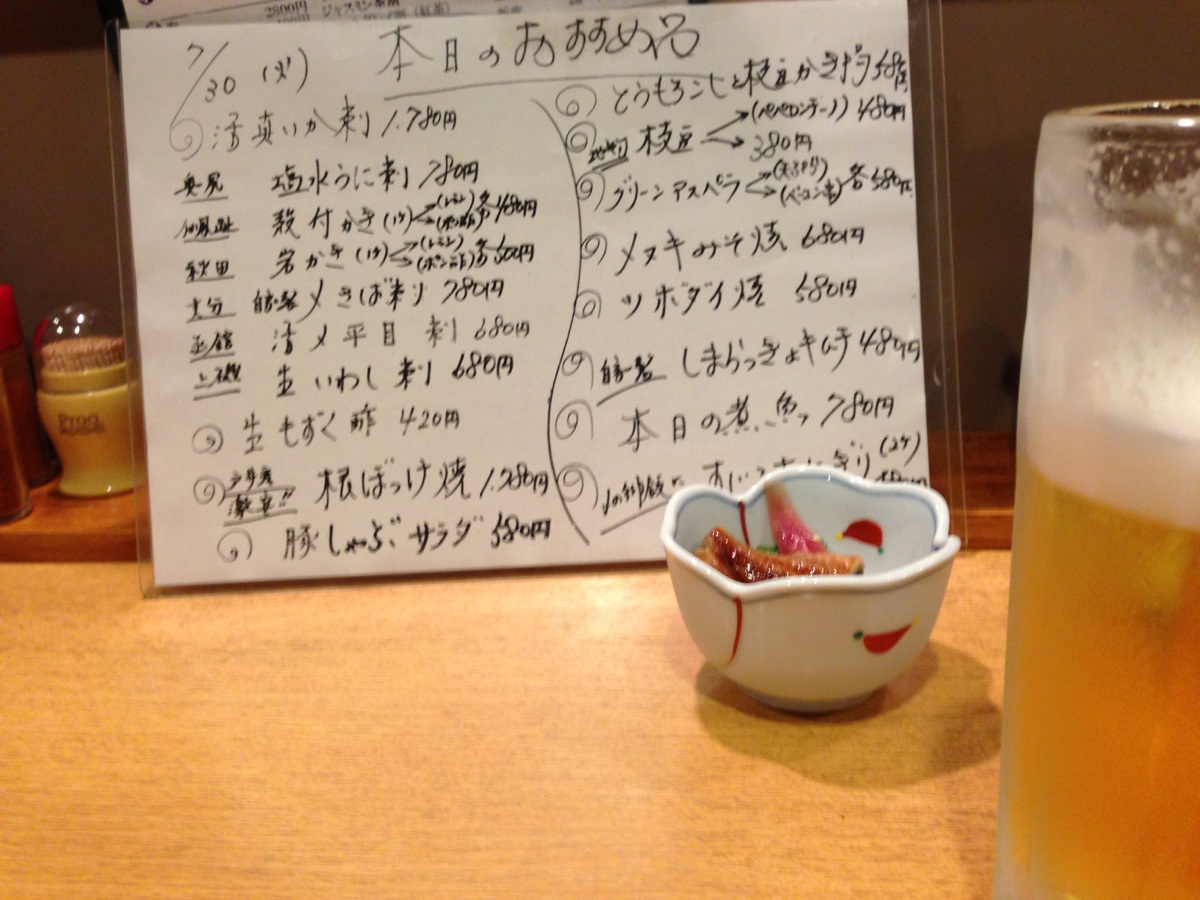 2800円 ジャスミン茶
(紅茶)
7/30 (火) 本日のおすすめ品
活真いか刺 1.780円
奥尻 塩水うに刺 780円
殻付かき(1ケ) (レモン) (ポン酢) 各480円
秋田 岩かき(1ケ) (レモン) (ポン酢) 各500円
大分 自家製 〆さば刺 780円
函館 活〆平目刺 680円
上磯 生いわし刺 680円
生もずく酢 420円
激安!! 根ぼっけ焼 1.280円
豚しゃぶサラダ 580円
とうもろこしと枝豆かき揚げ 580円
枝豆 (ペペロンチーノ) 480円
380円
グリーンアスパラ (天ぷら) (ベーコン巻) 各580円
メヌキみそ焼 680円
ツボダイ焼 580円
自家製 しまらっきょキムチ 480円
本日の煮魚 780円
(2ケ)
Proo